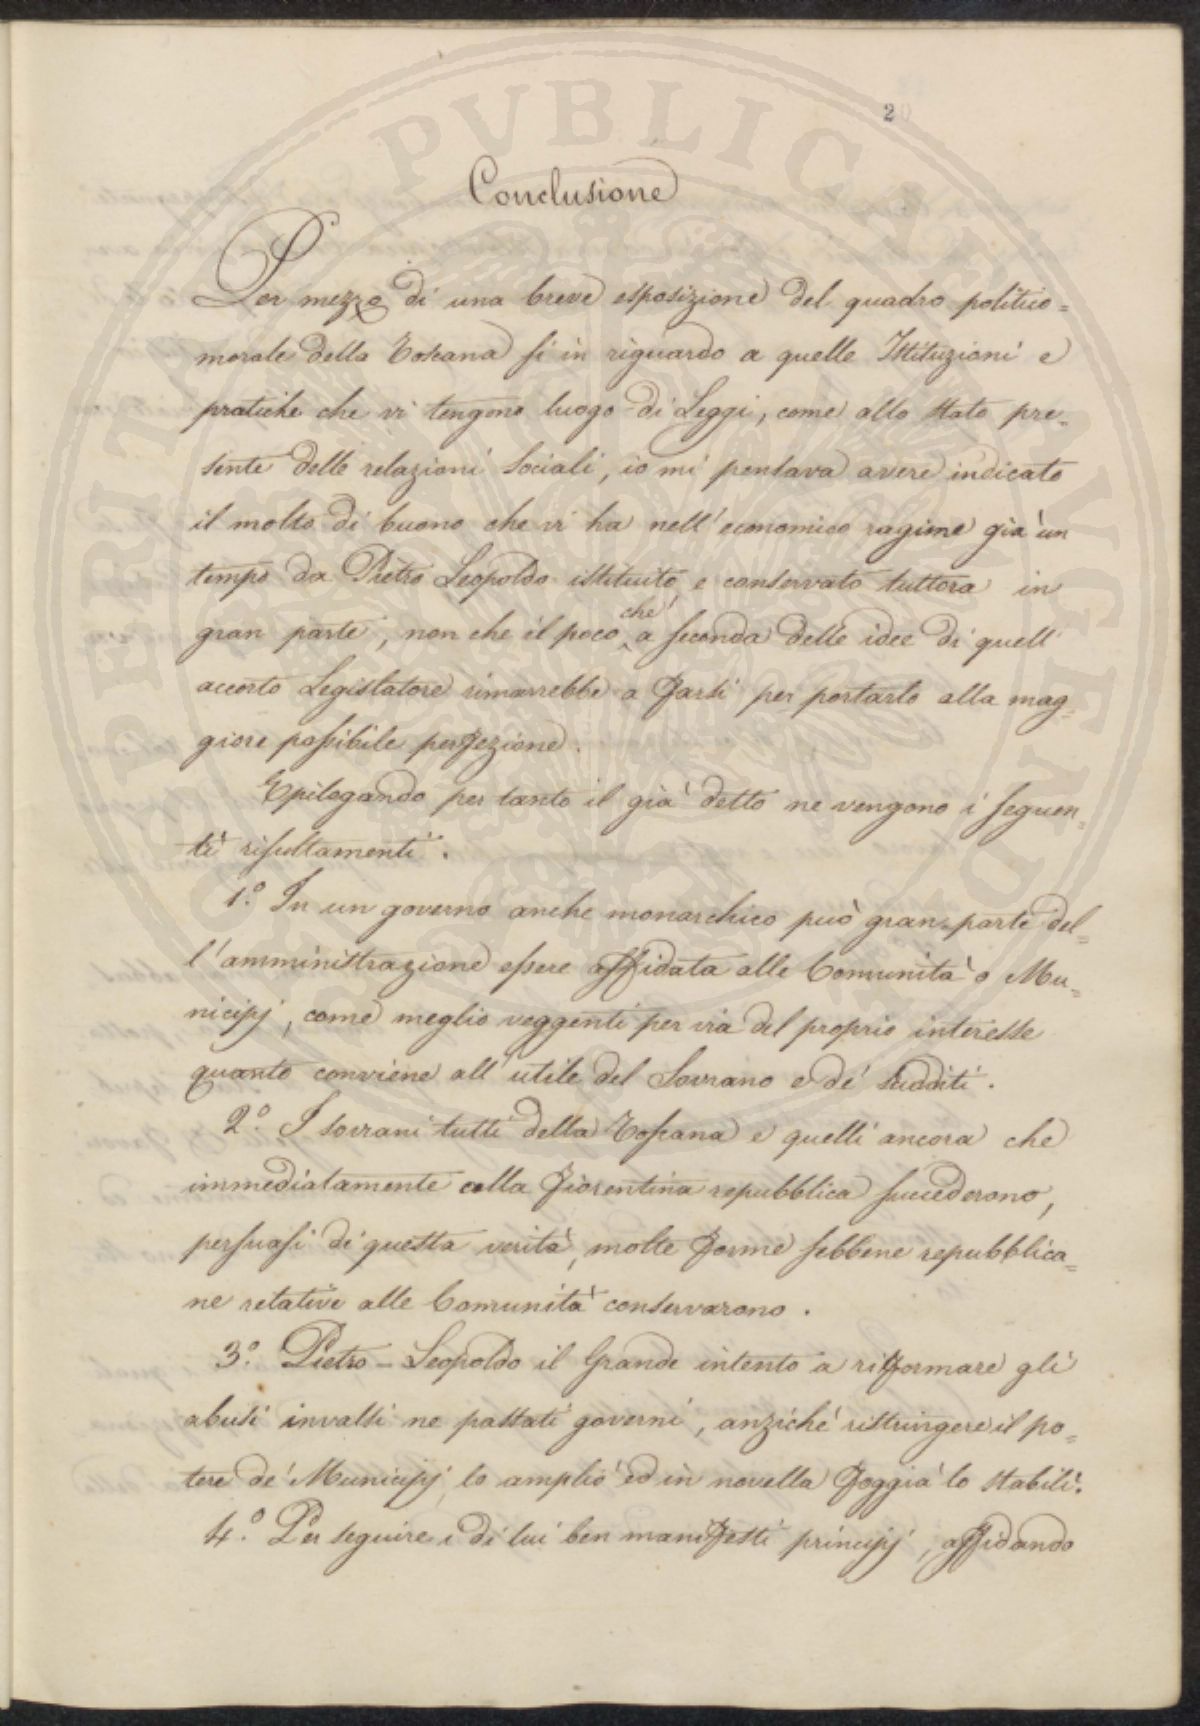 20
Conclusione
Per mezzo di una breve esposizione del quadro politico=
morale della Toscana si in riguardo a quelle Istituzioni e
pratiche che vi tengono luogo di Leggi, come allo stato pre=
sente delle relazioni Sociali, io mi pensava avere indicato
il molto di buono che vi ha nell'economico regime già un
tempo da Pietro Leopoldo istituito, e conservato tuttora in
gran parte, non che il poco che a seconda delle idee di quell'
accorto Legislatore rimarrebbe a farsi per portarlo alla mag=
giore possibile perfezione.
Epilogando per tanto il già detto ne vengono i seguen=
ti risultamenti.
1.º In un governo anche monarchico può gran parte del=
l'amministrazione essere affidata alle Comunità o Mu=
nicipj, come meglio veggenti per via del proprio interesse
quanto conviene all'utile del Sovrano e de' sudditi.
2.º I sovrani tutti della Toscana e quelli ancora che
immediatamente alla fiorentina repubblica succederono,
persuasi di questa verità, molte forme sebbene repubblica=
ne relative alle Comunità conservarono.
3.º Pietro-Leopoldo il Grande intento a riformare gli
abusi invalsi ne passati governi, anziché ristringere il po=
tere de' Municipj lo ampliò ed in novella foggia lo stabilì.
4.º Per seguire i di lui ben manifesti principj, affidando
PERITAE PUBLICAE DILIGENTIA